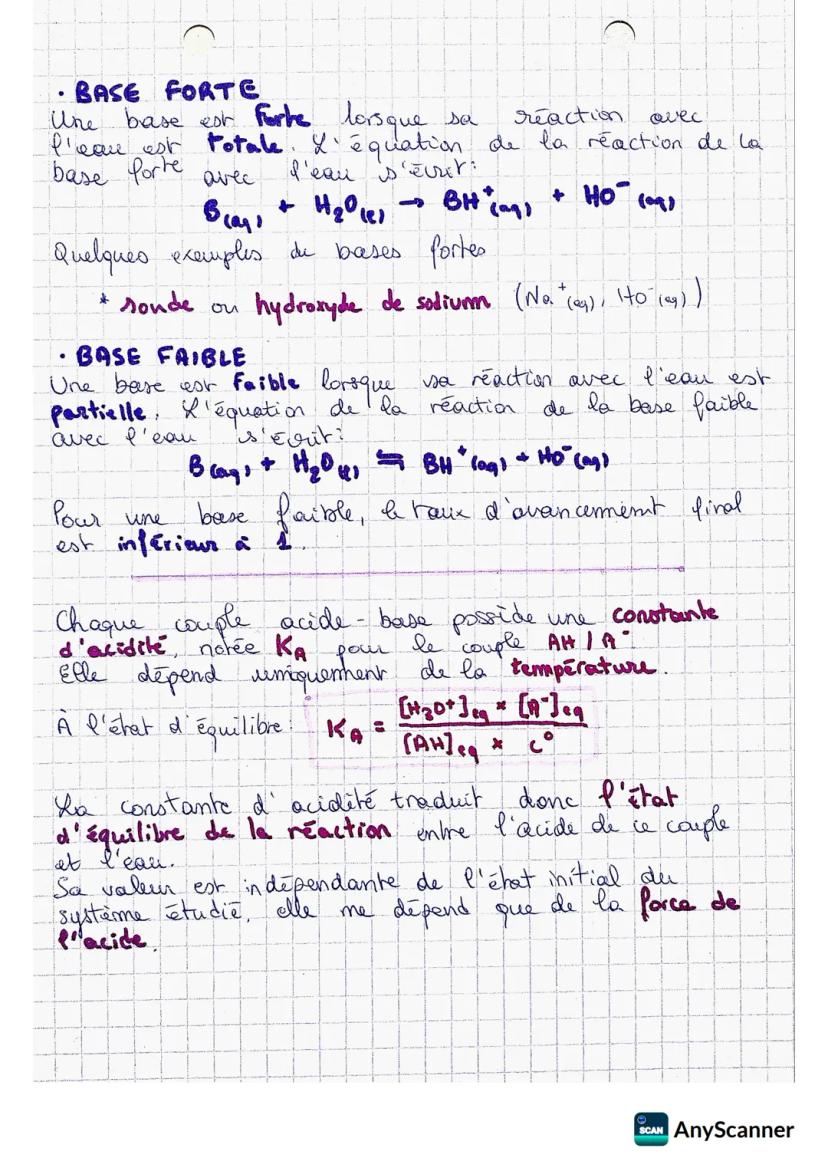 · BASE FORTE
Une base est forte lorsque sa réaction avec
l'eau est totale. L'équation de la réaction de la
base forte avec l'eau s'écrit:
B(aq) + H₂O(l) → BH⁺(aq) + HO⁻(aq)
Quelques exemples de bases fortes
* soude ou hydroxyde de sodium (Na⁺(aq), HO⁻(aq))
· BASE FAIBLE
Une base est faible lorsque sa réaction avec l'eau est
partielle. L'équation de la réaction de la base faible
avec l'eau s'écrit:
B(aq) + H₂O(l) ⇆ BH⁺(aq) + HO⁻(aq)
Pour une base faible, le taux d'avancement final
est inférieur à 1.
Chaque couple acide-base possède une constante
d'acidité, notée KA pour le couple AH / A⁻.
Elle dépend uniquement de la température.
À l'état d'équilibre: KA = [H₃O⁺]eq × [A⁻]eq / [AH]eq × c°
La constante d'acidité traduit donc l'état
d'équilibre de la réaction entre l'acide de ce couple
et l'eau.
Sa valeur est indépendante de l'état initial du
système étudié, elle ne dépend que de la force de
l'acide.
SCAN AnyScanner